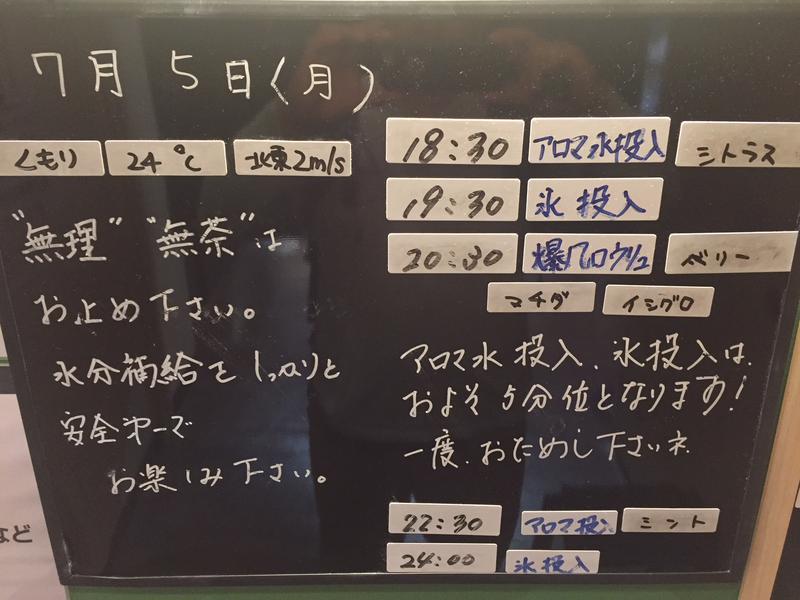 7月 5日(月)
くもり 24℃ 北東2m/s
"無理" "無茶"は
お止め下さい。
水分補給をしっかりと
安全第一で
お楽しみ下さい。
18:30 アロマ水投入 シトラス
19:30 氷 投入
20:30 爆風ロウリュ ベリー
マチダ イシグロ
アロマ水投入、氷投入は、
およそ5分位となります!
一度、おためし下さいネ。
22:30 アロマ投入 ミント
24:00 氷投入
など